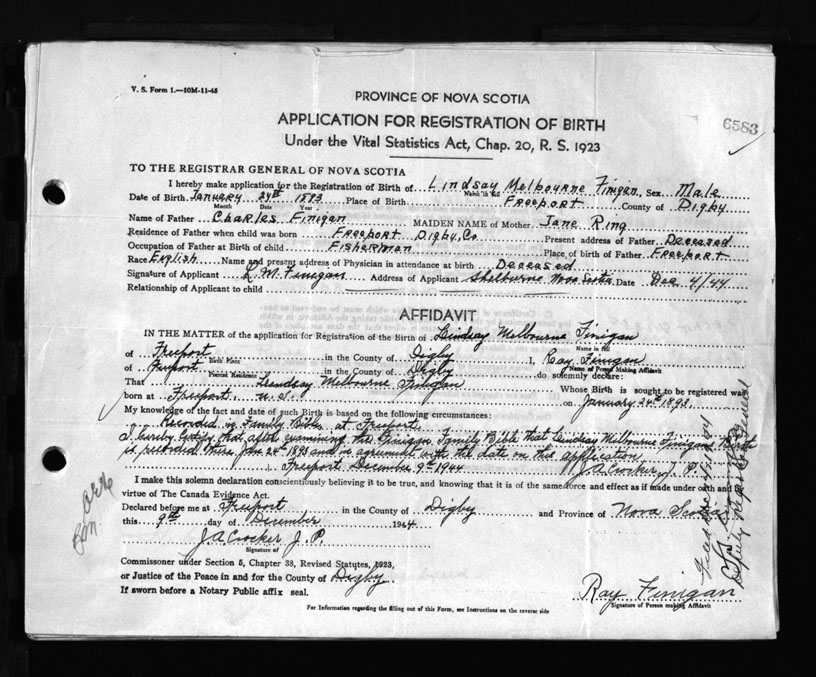 V. S. Form 1.—10M-11-43
PROVINCE OF NOVA SCOTIA
6583
APPLICATION FOR REGISTRATION OF BIRTH
Under the Vital Statistics Act, Chap. 20, R. S. 1923
TO THE REGISTRAR GENERAL OF NOVA SCOTIA
I hereby make application for the Registration of Birth of Lindsay Melbourne Finigan, Sex Male
Name in full
Date of Birth January 24th 1893 Place of Birth Freeport County of Digby
Month Date Year
Name of Father Charles Finigan MAIDEN NAME of Mother Jane Ring
Residence of Father when child was born Freeport Digby, Co Present address of Father Deceased
Occupation of Father at Birth of child Fisherman Place of birth of Father Freeport
Race English Name and present address of Physician in attendance at birth Deceased
Signature of Applicant L. M. Finigan Address of Applicant Shelburne Nova Scotia Date Dec 4/44
Relationship of Applicant to child
AFFIDAVIT
IN THE MATTER of the application for Registration of the Birth of Lindsay Melbourne Finigan
Name in full
of Freeport in the County of Digby I, Ray Finigan
Birth Place Name of Person Making Affidavit
of Freeport in the County of Digby do solemnly declare:
Present Residence
That Lindsay Melbourne Finigan Whose Birth is sought to be registered was
born at Freeport N. S. on January 24th 1893.
My knowledge of the fact and date of such Birth is based on the following circumstances:
Recorded in Family Bible at Freeport
I hereby Certify that after examining the Finigan Family Bible that Lindsay Melbourne Finigans Birth
is recorded there Jan 24th 1893 and in agreement with the date on this application
Freeport December 9th 1944 J A Crocker J. P.
I make this solemn declaration conscientiously believing it to be true, and knowing that it is of the same force and effect as if made under oath and by
virtue of The Canada Evidence Act.
Declared before me at Freeport in the County of Digby and Province of Nova Scotia
this 9th day of December 1944
J A Crocker J. P.
Signature of
Commissioner under Section 5, Chapter 38, Revised Statutes, 1923,
or Justice of the Peace in and for the County of Digby.
If sworn before a Notary Public affix seal.
Ray Finigan
Signature of Person making Affidavit
For Information regarding the filling out of this Form, see Instructions on the reverse side
Filed Dec
Deputy Registrar General